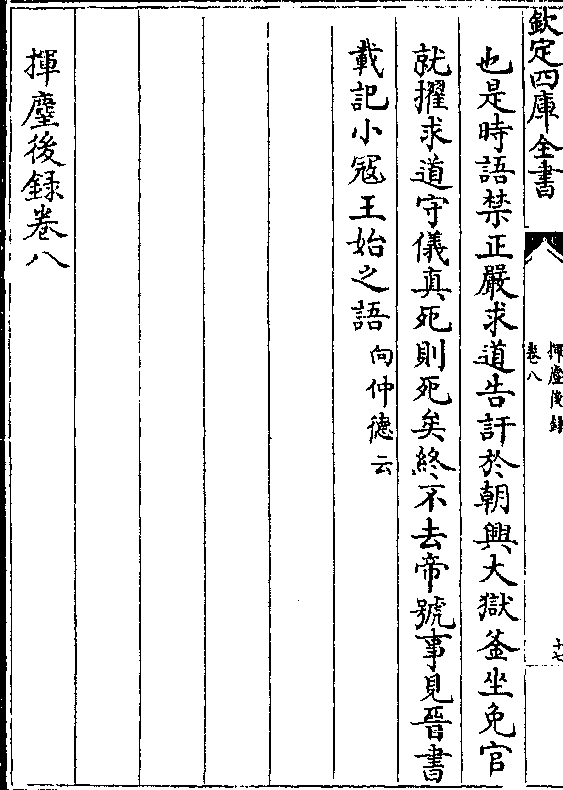 欽定四庫全書
揮麈後録
卷八
十七
也是時語禁正嚴求道告訐於朝興大獄釜坐免官
就擢求道守儀真死則死矣終不去帝號事見晉書
載記小冦王始之語向仲德云
揮麈後録卷八